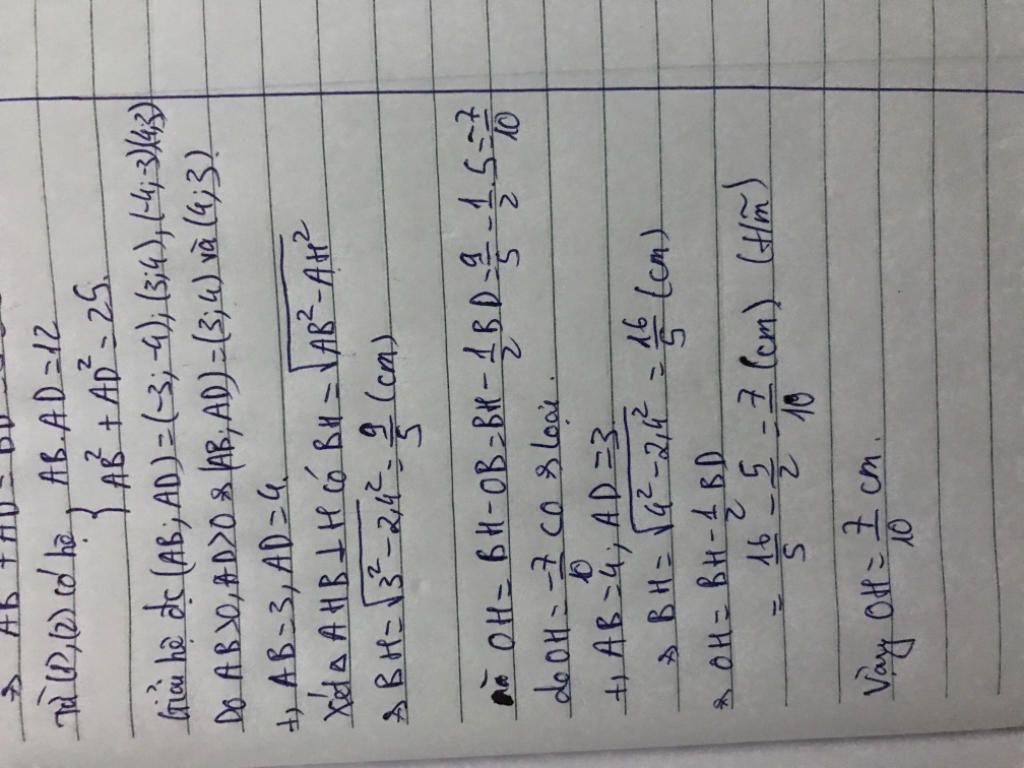 AB + AD = BD
Từ (1), (2) có hệ { AB.AD = 12
AB² + AD² = 25.
Giải hệ đc (AB; AD) = (-3; -4); (3; 4), (-4; -3)(4; 3)
Do AB>0, AD>0 → (AB; AD) = (3; 4) và (4; 3)
+, AB = 3, AD = 4.
Xét △ AHB ⊥ H có BH = √(AB² - AH²)
→ BH = √(3² - 2,4²) = 9/5 (cm)
OH = BH - OB = BH - 1/2 BD = 9/5 - 1/2 . 5 = -7/10
do OH = -7/10 < 0 → loại.
+, AB = 4, AD = 3
→ BH = √(4² - 2,4²) = 16/5 (cm)
→ OH = BH - 1/2 BD
= 16/5 - 5/2 = 7/10 (cm) (t/m)
Vậy OH = 7/10 cm.